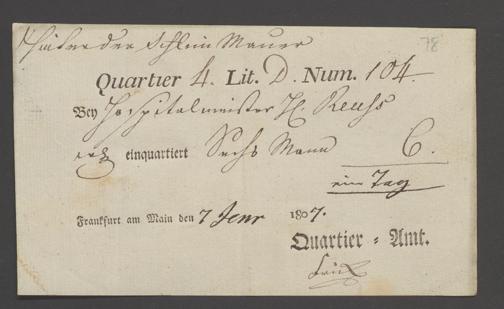 78
hinter der Schlim Mauer
Quartier 4. Lit. D. Num. 104.
Bey Hospitalmeister H. Reuhs
einquartiert Sechs Mann 6.
ein Tag
Frankfurt am Main den 7 Jenr 1807.
Quartier-Amt.